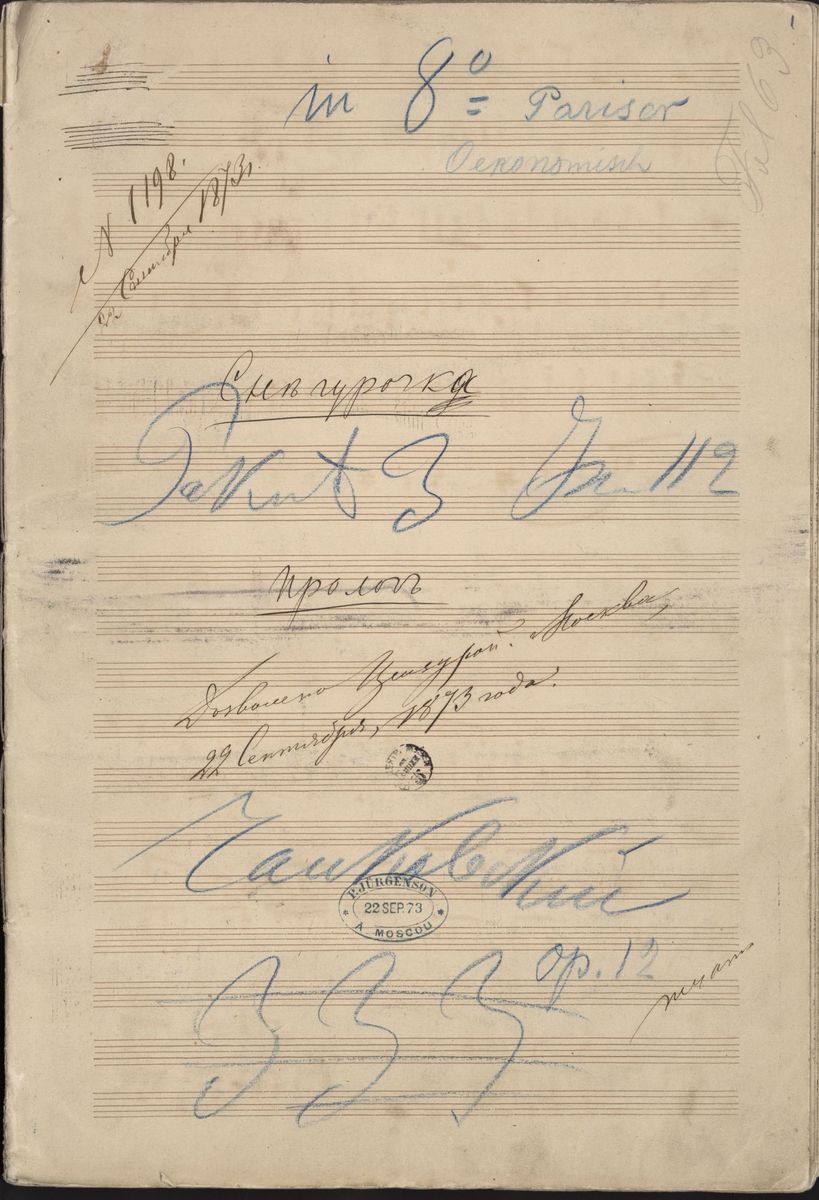 1
in 8º Pariser
Oekonomisch
63
N 1198.
22 Сентября 1873 г.
Снѣгурочка
3
112
Прологъ
Дозволено Цензурой. Москва,
22 Сентября, 1873 года.
Чайковский
P. JÜRGENSON
22 SEP. 73
A MOSCOU
op. 12
333